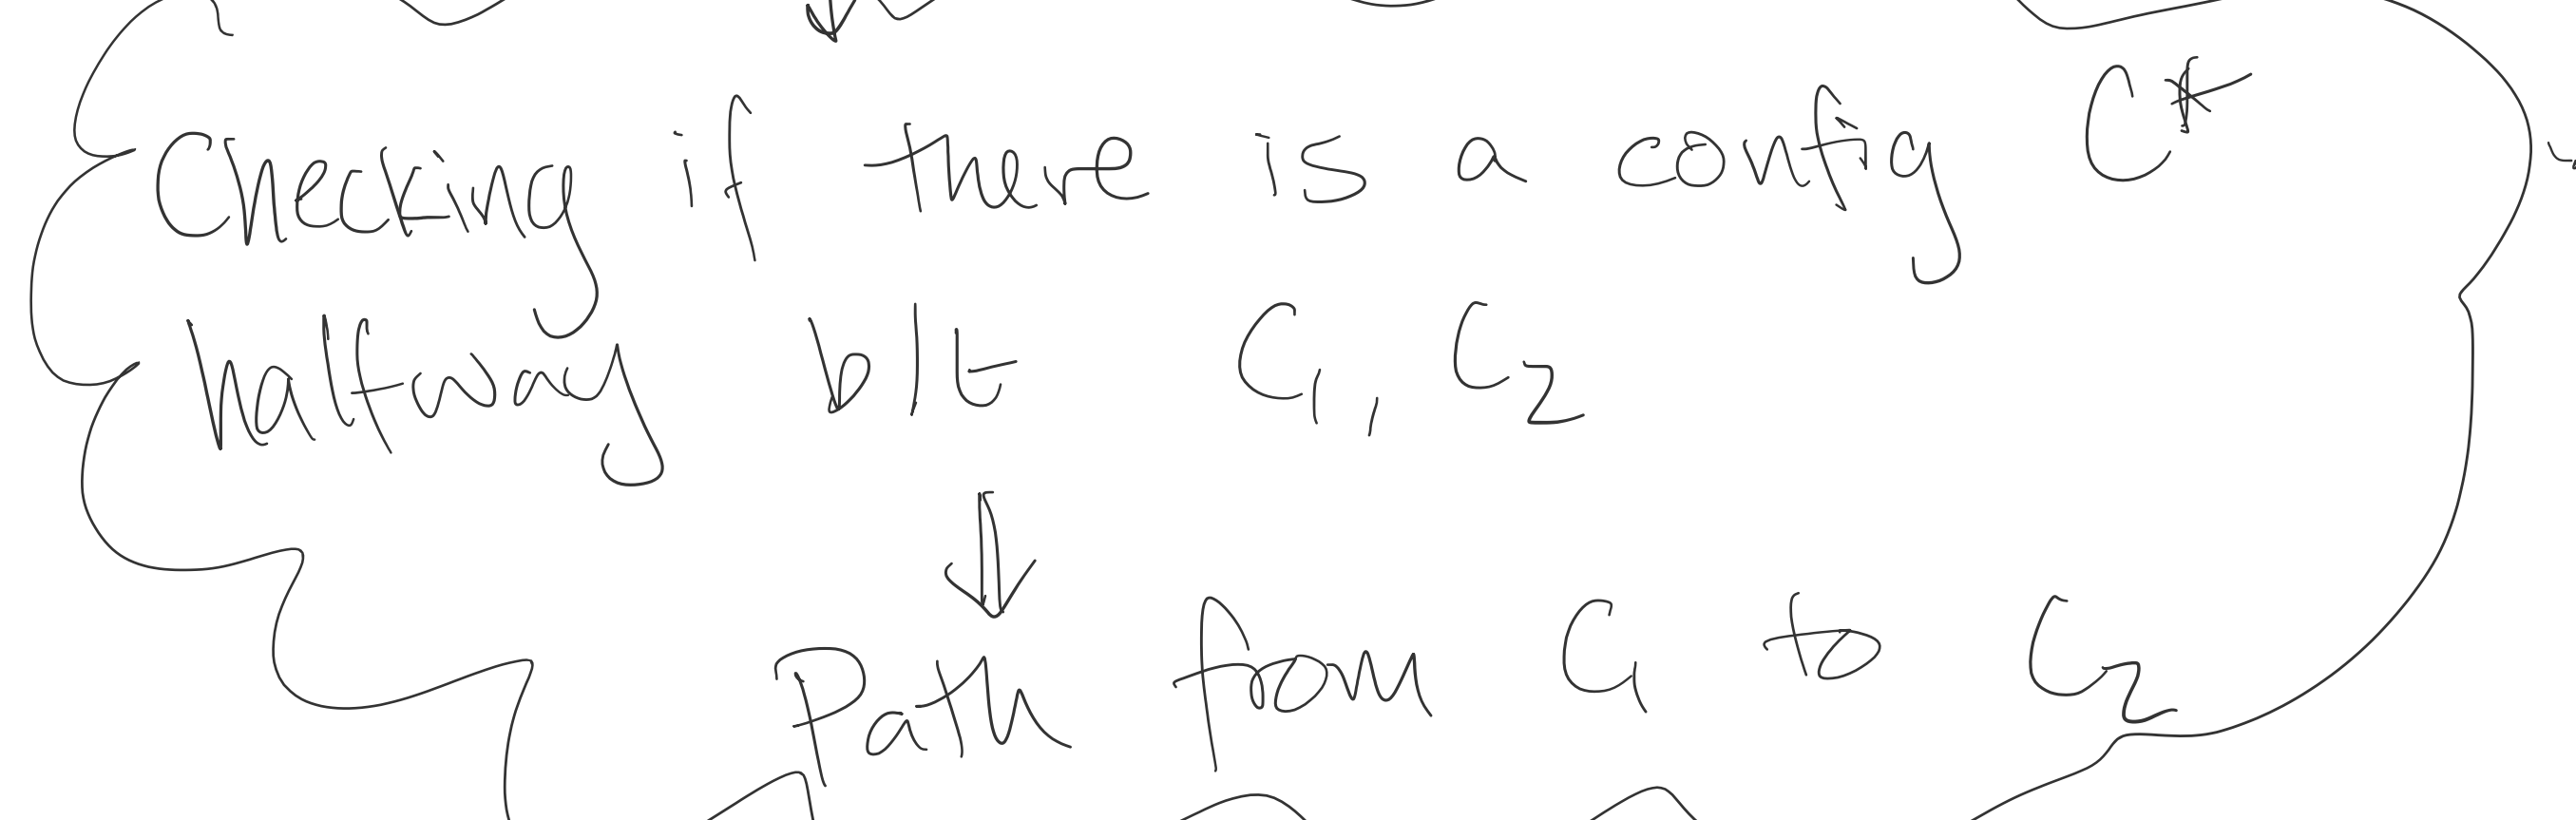 Checking if there is a config C*
halfway b/t C₁, C₂
⇓
Path from C₁ to C₂